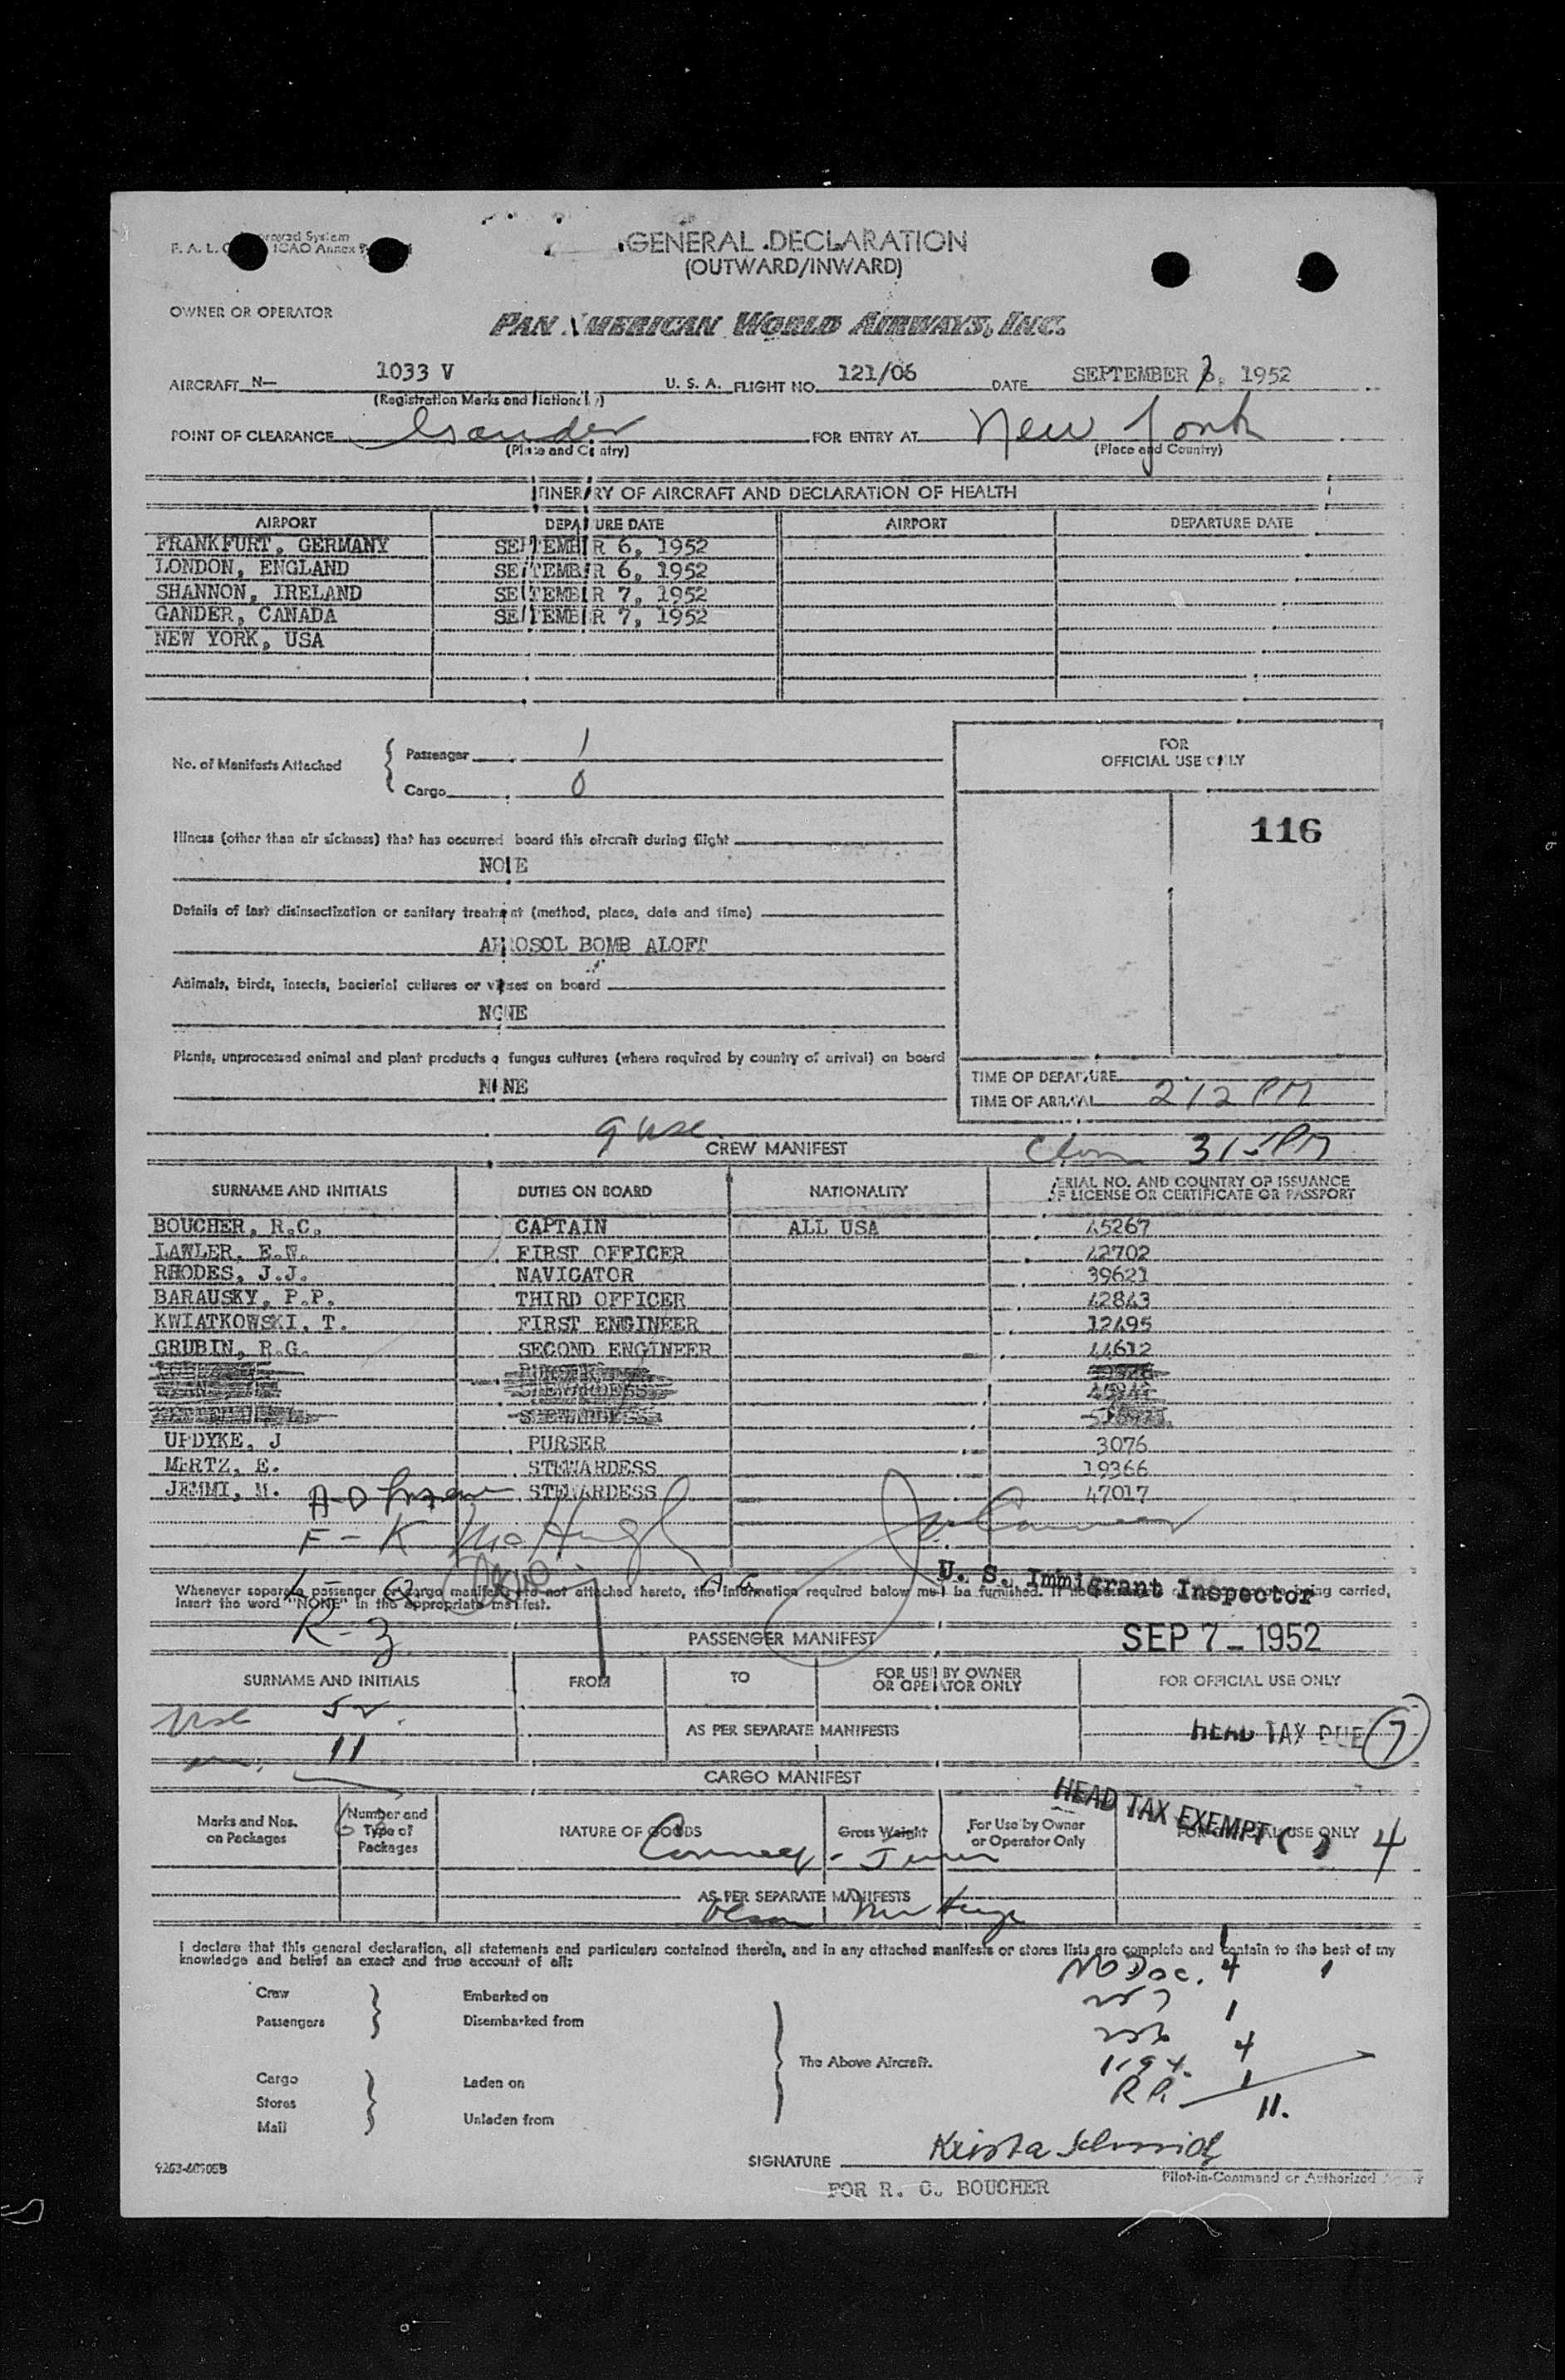 GENERAL DECLARATION
(OUTWARD/INWARD)
OWNER OR OPERATOR
PAN AMERICAN WORLD AIRWAYS, INC.
AIRCRAFT N— 1033 V U. S. A. FLIGHT NO. 121/06 DATE SEPTEMBER 7, 1952
(Registration Marks and Nationality)
POINT OF CLEARANCE Gander FOR ENTRY AT New York
(Place and Country) (Place and Country)
ITINERARY OF AIRCRAFT AND DECLARATION OF HEALTH
AIRPORT DEPARTURE DATE AIRPORT DEPARTURE DATE
FRANKFURT, GERMANY SEPTEMBER 6, 1952
LONDON, ENGLAND SEPTEMBER 6, 1952
SHANNON, IRELAND SEPTEMBER 7, 1952
GANDER, CANADA SEPTEMBER 7, 1952
NEW YORK, USA
No. of Manifests Attached
Passenger 1
Cargo 0
FOR
OFFICIAL USE ONLY
116
Illness (other than air sickness) that has occurred board this aircraft during flight
NONE
Details of last disinsectization or sanitary treatment (method, place, date and time)
AEROSOL BOMB ALOFT
Animals, birds, insects, bacterial cultures or viruses on board
NONE
Plants, unprocessed animal and plant products or fungus cultures (where required by country of arrival) on board
NONE
TIME OF DEPARTURE
TIME OF ARRIVAL 212 PM
9 use
CREW MANIFEST
315 PM
SURNAME AND INITIALS DUTIES ON BOARD NATIONALITY SERIAL NO. AND COUNTRY OF ISSUANCE
OF LICENSE OR CERTIFICATE OR PASSPORT
BOUCHER, R.C. CAPTAIN ALL USA 45267
LAWLER, E.W. FIRST OFFICER 42702
RHODES, J.J. NAVIGATOR 39621
BARAUSKY, P.P. THIRD OFFICER 42843
KWIATKOWSKI, T. FIRST ENGINEER 12495
GRUBIN, R.G. SECOND ENGINEER 44612
UPDYKE, J PURSER 3076
MERTZ, E. STEWARDESS 19366
JEMMI, M. STEWARDESS 47017
A-D
F - K McHugh
L - Q
U. S. Immigrant Inspector
Whenever separate passenger or cargo manifests are not attached hereto, the information required below must be furnished. If being carried,
insert the word "NONE" in the appropriate manifest.
R - Z
PASSENGER MANIFEST
SEP 7 - 1952
SURNAME AND INITIALS FROM TO FOR USE BY OWNER
OR OPERATOR ONLY FOR OFFICIAL USE ONLY
AS PER SEPARATE MANIFESTS
HEAD TAX DUE 7
11
CARGO MANIFEST
HEAD TAX EXEMPT ( ) 4
Marks and Nos.
on Packages
Number and
Type of
Packages
NATURE OF GOODS
Gross Weight
For Use by Owner
or Operator Only
FOR OFFICIAL USE ONLY
AS PER SEPARATE MANIFESTS
I declare that this general declaration, all statements and particulars contained therein, and in any attached manifests or stores lists are complete and contain to the best of my
knowledge and belief an exact and true account of all:
No Doc. 4
Crew
Passengers
Embarked on
Disembarked from
Cargo
Stores
Mail
Laden on
Unladen from
The Above Aircraft.
1
4
R.P. 1
11.
SIGNATURE Krista Schmidt
Pilot-in-Command or Authorized Agent
FOR R. C. BOUCHER